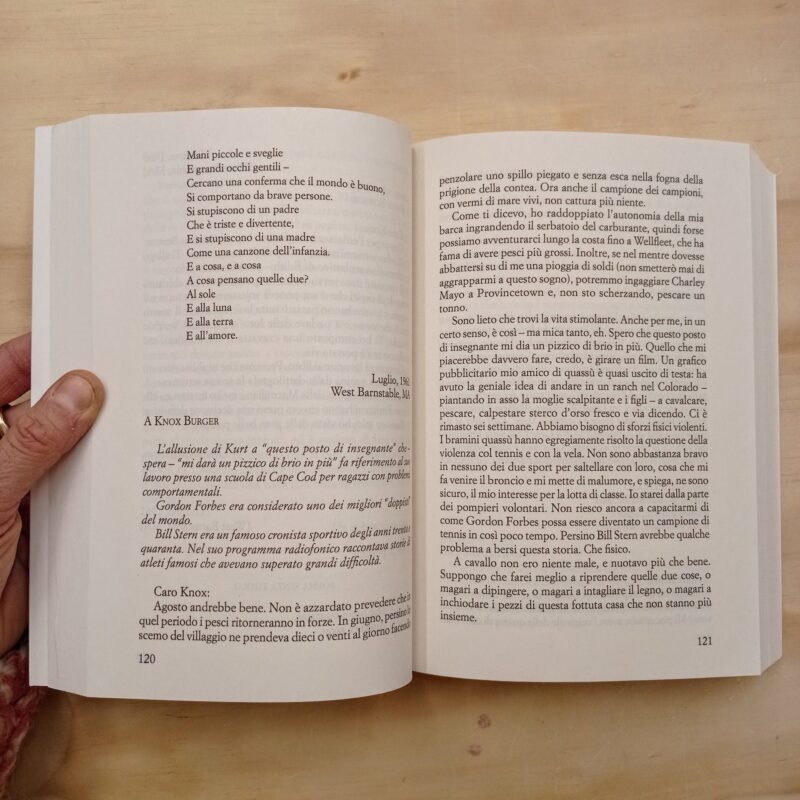 Mani piccole e sveglie
E grandi occhi gentili –
Cercano una conferma che il mondo è buono,
Si comportano da brave persone.
Si stupiscono di un padre
Che è triste e divertente,
E si stupiscono di una madre
Come una canzone dell'infanzia.
E a cosa, e a cosa
A cosa pensano quelle due?
Al sole
E alla luna
E alla terra
E all'amore.
Luglio,
West Barnstable, MA
A KNOX BURGER
L'allusione di Kurt a “questo posto di insegnante” che –
spera – “mi darà un pizzico di brio in più” fa riferimento al suo
lavoro presso una scuola di Cape Cod per ragazzi con problemi
comportamentali.
Gordon Forbes era considerato uno dei migliori “doppisti”
del mondo.
Bill Stern era un famoso cronista sportivo degli anni trenta e
quaranta. Nel suo programma radiofonico raccontava storie di
atleti famosi che avevano superato grandi difficoltà.
Caro Knox:
Agosto andrebbe bene. Non è azzardato prevedere che in
quel periodo i pesci ritorneranno in forze. In giugno, persino lo
scemo del villaggio ne prendeva dieci o venti al giorno facendo
120
penzolare uno spillo piegato e senza esca nella fogna della
prigione della contea. Ora anche il campione dei campioni,
con vermi di mare vivi, non cattura più niente.
Come ti dicevo, ho raddoppiato l'autonomia della mia
barca ingrandendo il serbatoio del carburante, quindi forse
possiamo avventurarci lungo la costa fino a Wellfleet, che ha
fama di avere pesci più grossi. Inoltre, se nel mentre dovesse
abbattersi su di me una pioggia di soldi (non smetterò mai di
aggrapparmi a questo sogno), potremmo ingaggiare Charley
Mayo a Provincetown e, non sto scherzando, pescare un
tonno.
Sono lieto che trovi la vita stimolante. Anche per me, in un
certo senso, è così – ma mica tanto, eh. Spero che questo posto
di insegnante mi dia un pizzico di brio in più. Quello che mi
piacerebbe davvero fare, credo, è girare un film. Un grafico
pubblicitario mio amico di quassù è quasi uscito di testa: ha
avuto la geniale idea di andare in un ranch nel Colorado –
piantando in asso la moglie scalpitante e i figli – a cavalcare,
pescare, calpestare sterco d'orso fresco e via dicendo. Ci è
rimasto sei settimane. Abbiamo bisogno di sforzi fisici violenti.
I bramini quassù hanno egregiamente risolto la questione della
violenza col tennis e con la vela. Non sono abbastanza bravo
in nessuno dei due sport per saltellare con loro, cosa che mi
fa venire il broncio e mi mette di malumore, e spiega, ne sono
sicuro, il mio interesse per la lotta di classe. Io starei dalla parte
dei pompieri volontari. Non riesco ancora a capacitarmi di
come Gordon Forbes possa essere diventato un campione di
tennis in così poco tempo. Persino Bill Stern avrebbe qualche
problema a bersi questa storia. Che fisico.
A cavallo non ero niente male, e nuotavo più che bene.
Suppongo che farei meglio a riprendere quelle due cose, o
magari a dipingere, o magari a intagliare il legno, o magari a
inchiodare i pezzi di questa fottuta casa che non stanno più
insieme.
121